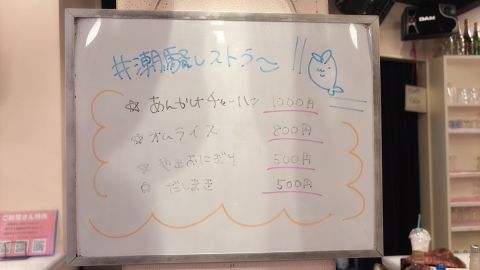 #潮騒レストラ〜
☆ あんかけチャーハン 1000円
☆ オムライス 800円
☆ やきおにぎり 500円
☆ だしまき 500円
DAM